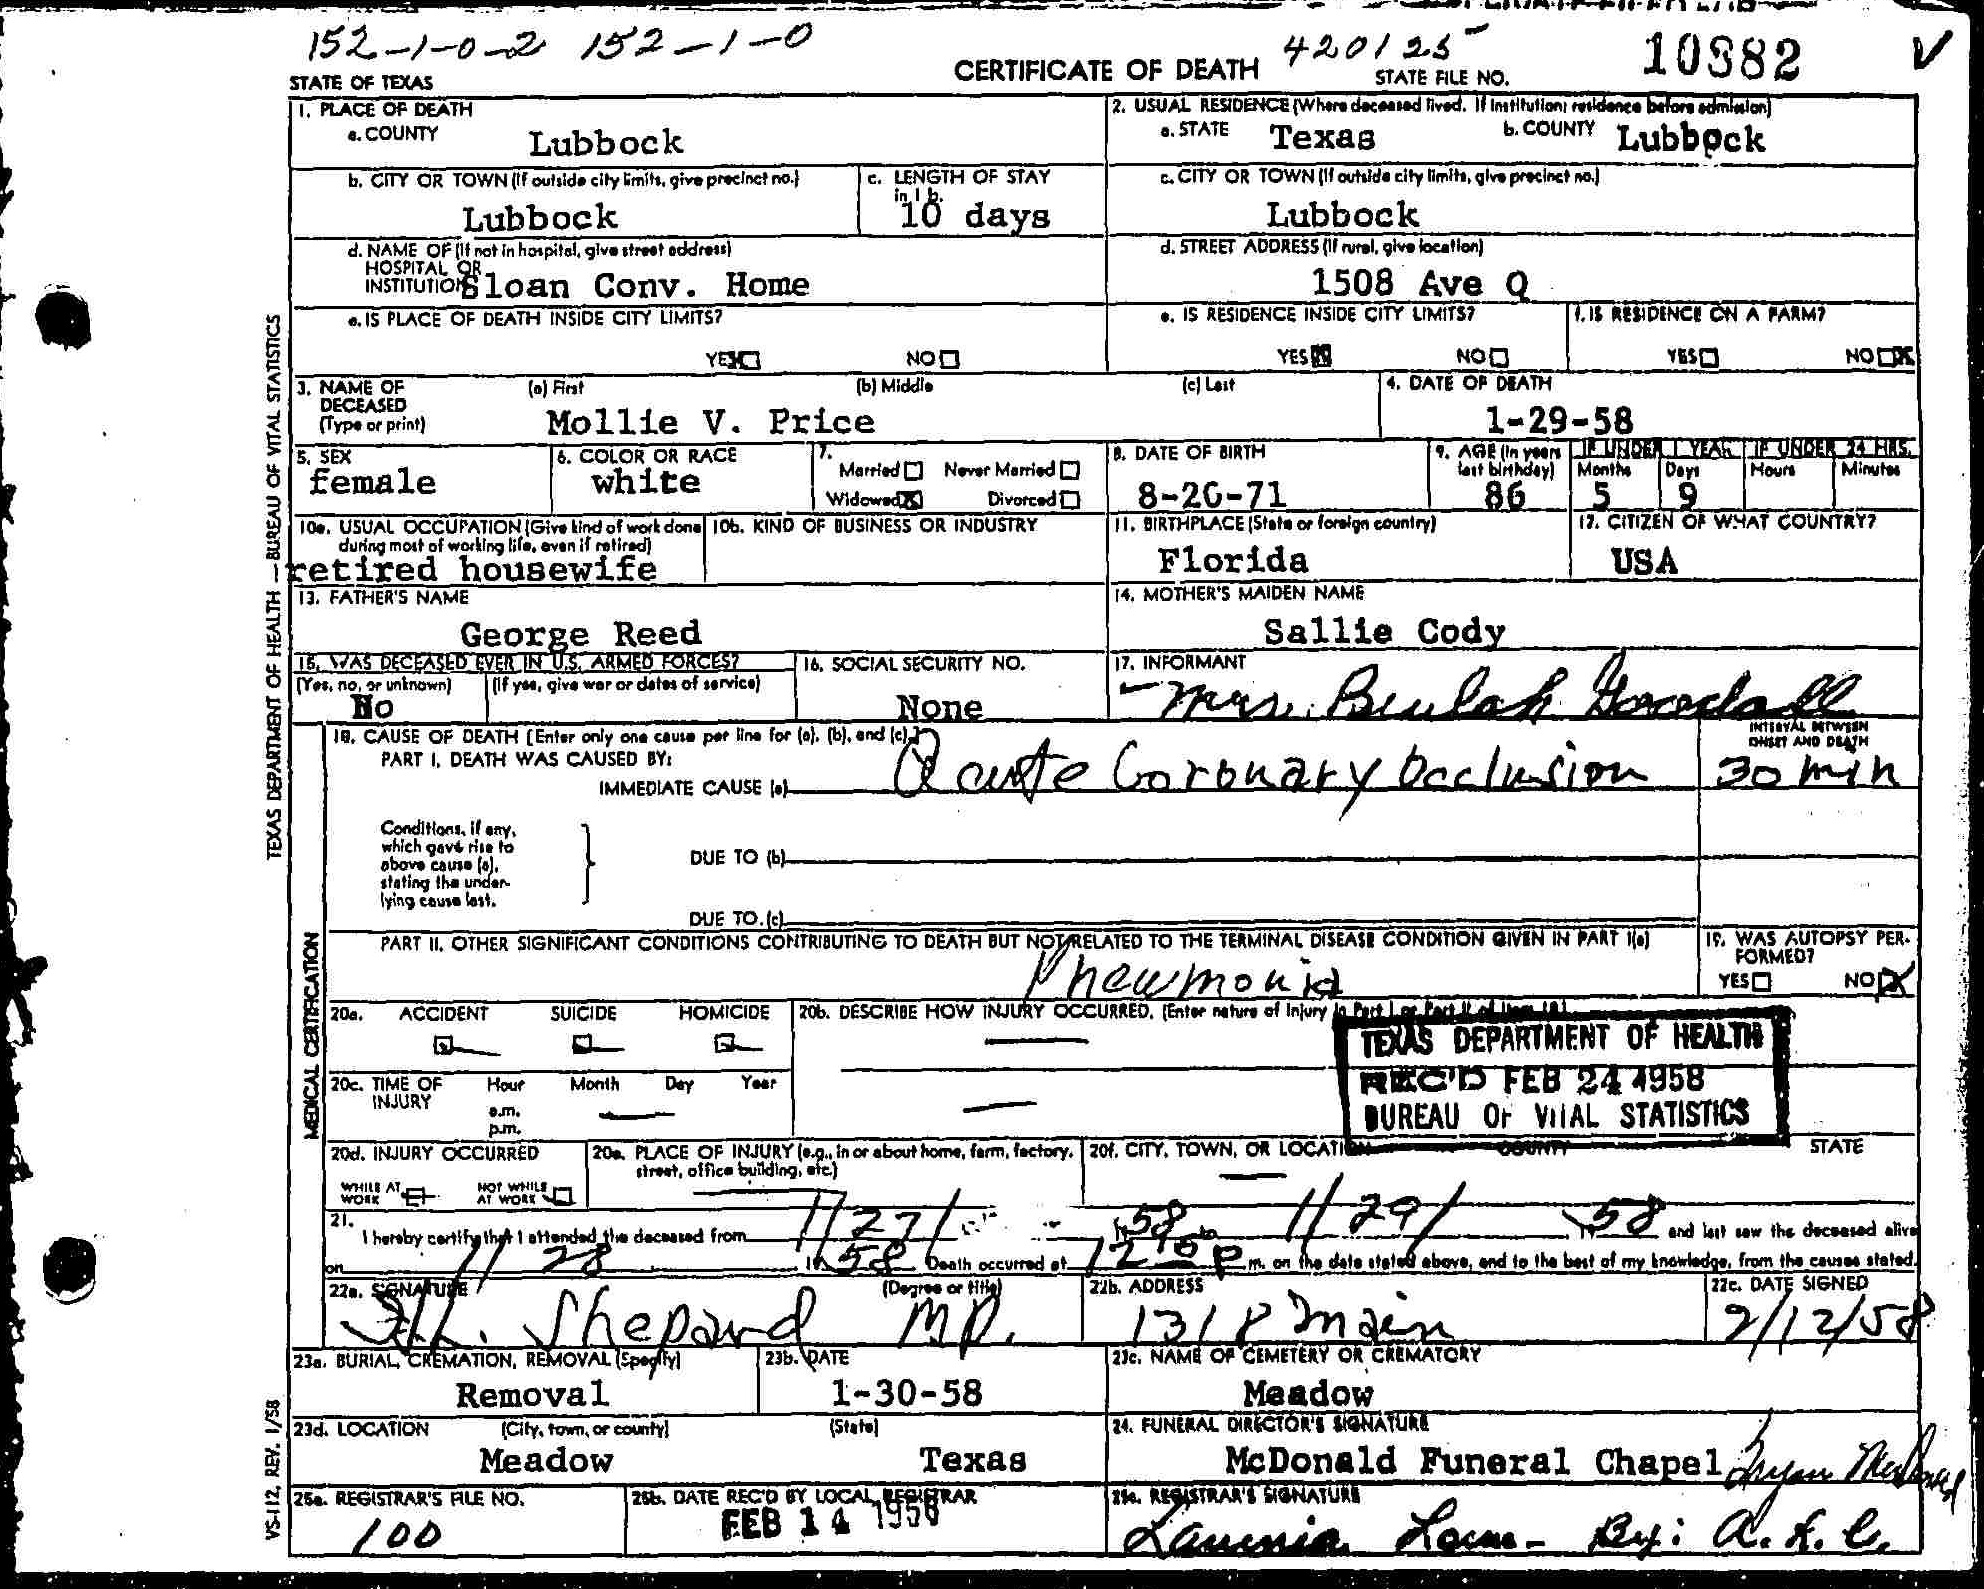 152-1-0-2 152-1-0
420125
10882
STATE OF TEXAS
CERTIFICATE OF DEATH
STATE FILE NO.
1. PLACE OF DEATH
a. COUNTY
Lubbock
2. USUAL RESIDENCE (Where deceased lived. If institution: residence before admission)
a. STATE Texas
b. COUNTY Lubbock
b. CITY OR TOWN (If outside city limits, give precinct no.)
Lubbock
c. LENGTH OF STAY
in 1 b.
10 days
c. CITY OR TOWN (If outside city limits, give precinct no.)
Lubbock
d. NAME OF (If not in hospital, give street address)
HOSPITAL OR
INSTITUTION Sloan Conv. Home
d. STREET ADDRESS (If rural, give location)
1508 Ave Q
e. IS PLACE OF DEATH INSIDE CITY LIMITS?
YES NO
e. IS RESIDENCE INSIDE CITY LIMITS?
YES NO
f. IS RESIDENCE ON A FARM?
YES NO
3. NAME OF
DECEASED
(Type or print)
(a) First (b) Middle (c) Last
Mollie V. Price
4. DATE OF DEATH
1-29-58
5. SEX
female
6. COLOR OR RACE
white
7.
Married Never Married
Widowed Divorced
8. DATE OF BIRTH
8-20-71
9. AGE (In years
last birthday)
86
IF UNDER 1 YEAR IF UNDER 24 HRS.
Months Days Hours Minutes
5 9
10a. USUAL OCCUPATION (Give kind of work done
during most of working life, even if retired)
retired housewife
10b. KIND OF BUSINESS OR INDUSTRY
11. BIRTHPLACE (State or foreign country)
Florida
12. CITIZEN OF WHAT COUNTRY?
USA
13. FATHER'S NAME
George Reed
14. MOTHER'S MAIDEN NAME
Sallie Cody
15. WAS DECEASED EVER IN U.S. ARMED FORCES?
(Yes, no, or unknown) (If yes, give war or dates of service)
No
16. SOCIAL SECURITY NO.
None
17. INFORMANT
Mrs. Beulah Goodall
18. CAUSE OF DEATH [Enter only one cause per line for (a), (b), and (c).]
PART I. DEATH WAS CAUSED BY:
IMMEDIATE CAUSE (a) Acute Coronary Occlusion
INTERVAL BETWEEN
ONSET AND DEATH
30 min
Conditions, if any,
which gave rise to
above cause (a),
stating the under-
lying cause last.
DUE TO (b)
DUE TO (c)
PART II. OTHER SIGNIFICANT CONDITIONS CONTRIBUTING TO DEATH BUT NOT RELATED TO THE TERMINAL DISEASE CONDITION GIVEN IN PART I(a)
Pneumonia
19. WAS AUTOPSY PER-
FORMED?
YES NO
20a. ACCIDENT SUICIDE HOMICIDE
20b. DESCRIBE HOW INJURY OCCURRED. (Enter nature of Injury in Part I or Part II of Item 18)
TEXAS DEPARTMENT OF HEALTH
REC'D FEB 24 1958
BUREAU OF VITAL STATISTICS
20c. TIME OF
INJURY
Hour Month Day Year
a.m.
p.m.
20d. INJURY OCCURRED
WHILE AT
WORK
NOT WHILE
AT WORK
20e. PLACE OF INJURY (e.g., in or about home, farm, factory,
street, office building, etc.)
20f. CITY, TOWN, OR LOCATION COUNTY STATE
21.
I hereby certify that I attended the deceased from 1/27/ 1958 to 1/29/ 1958 and last saw the deceased alive
on 1/ 28 1958 Death occurred at p m. on the date stated above, and to the best of my knowledge, from the causes stated.
22a. SIGNATURE (Degree or title)
Shepard MD.
22b. ADDRESS
1318 Main
22c. DATE SIGNED
2/12/58
23a. BURIAL, CREMATION, REMOVAL (Specify)
Removal
23b. DATE
1-30-58
23c. NAME OF CEMETERY OR CREMATORY
Meadow
23d. LOCATION (City, town, or county) (State)
Meadow Texas
24. FUNERAL DIRECTOR'S SIGNATURE
McDonald Funeral Chapel
25a. REGISTRAR'S FILE NO.
100
25b. DATE REC'D BY LOCAL REGISTRAR
FEB 14 1958
25c. REGISTRAR'S SIGNATURE
Lavenia Lowe - By: A. L. C.
TEXAS DEPARTMENT OF HEALTH — BUREAU OF VITAL STATISTICS
MEDICAL CERTIFICATION
VS-112, REV. 1/58